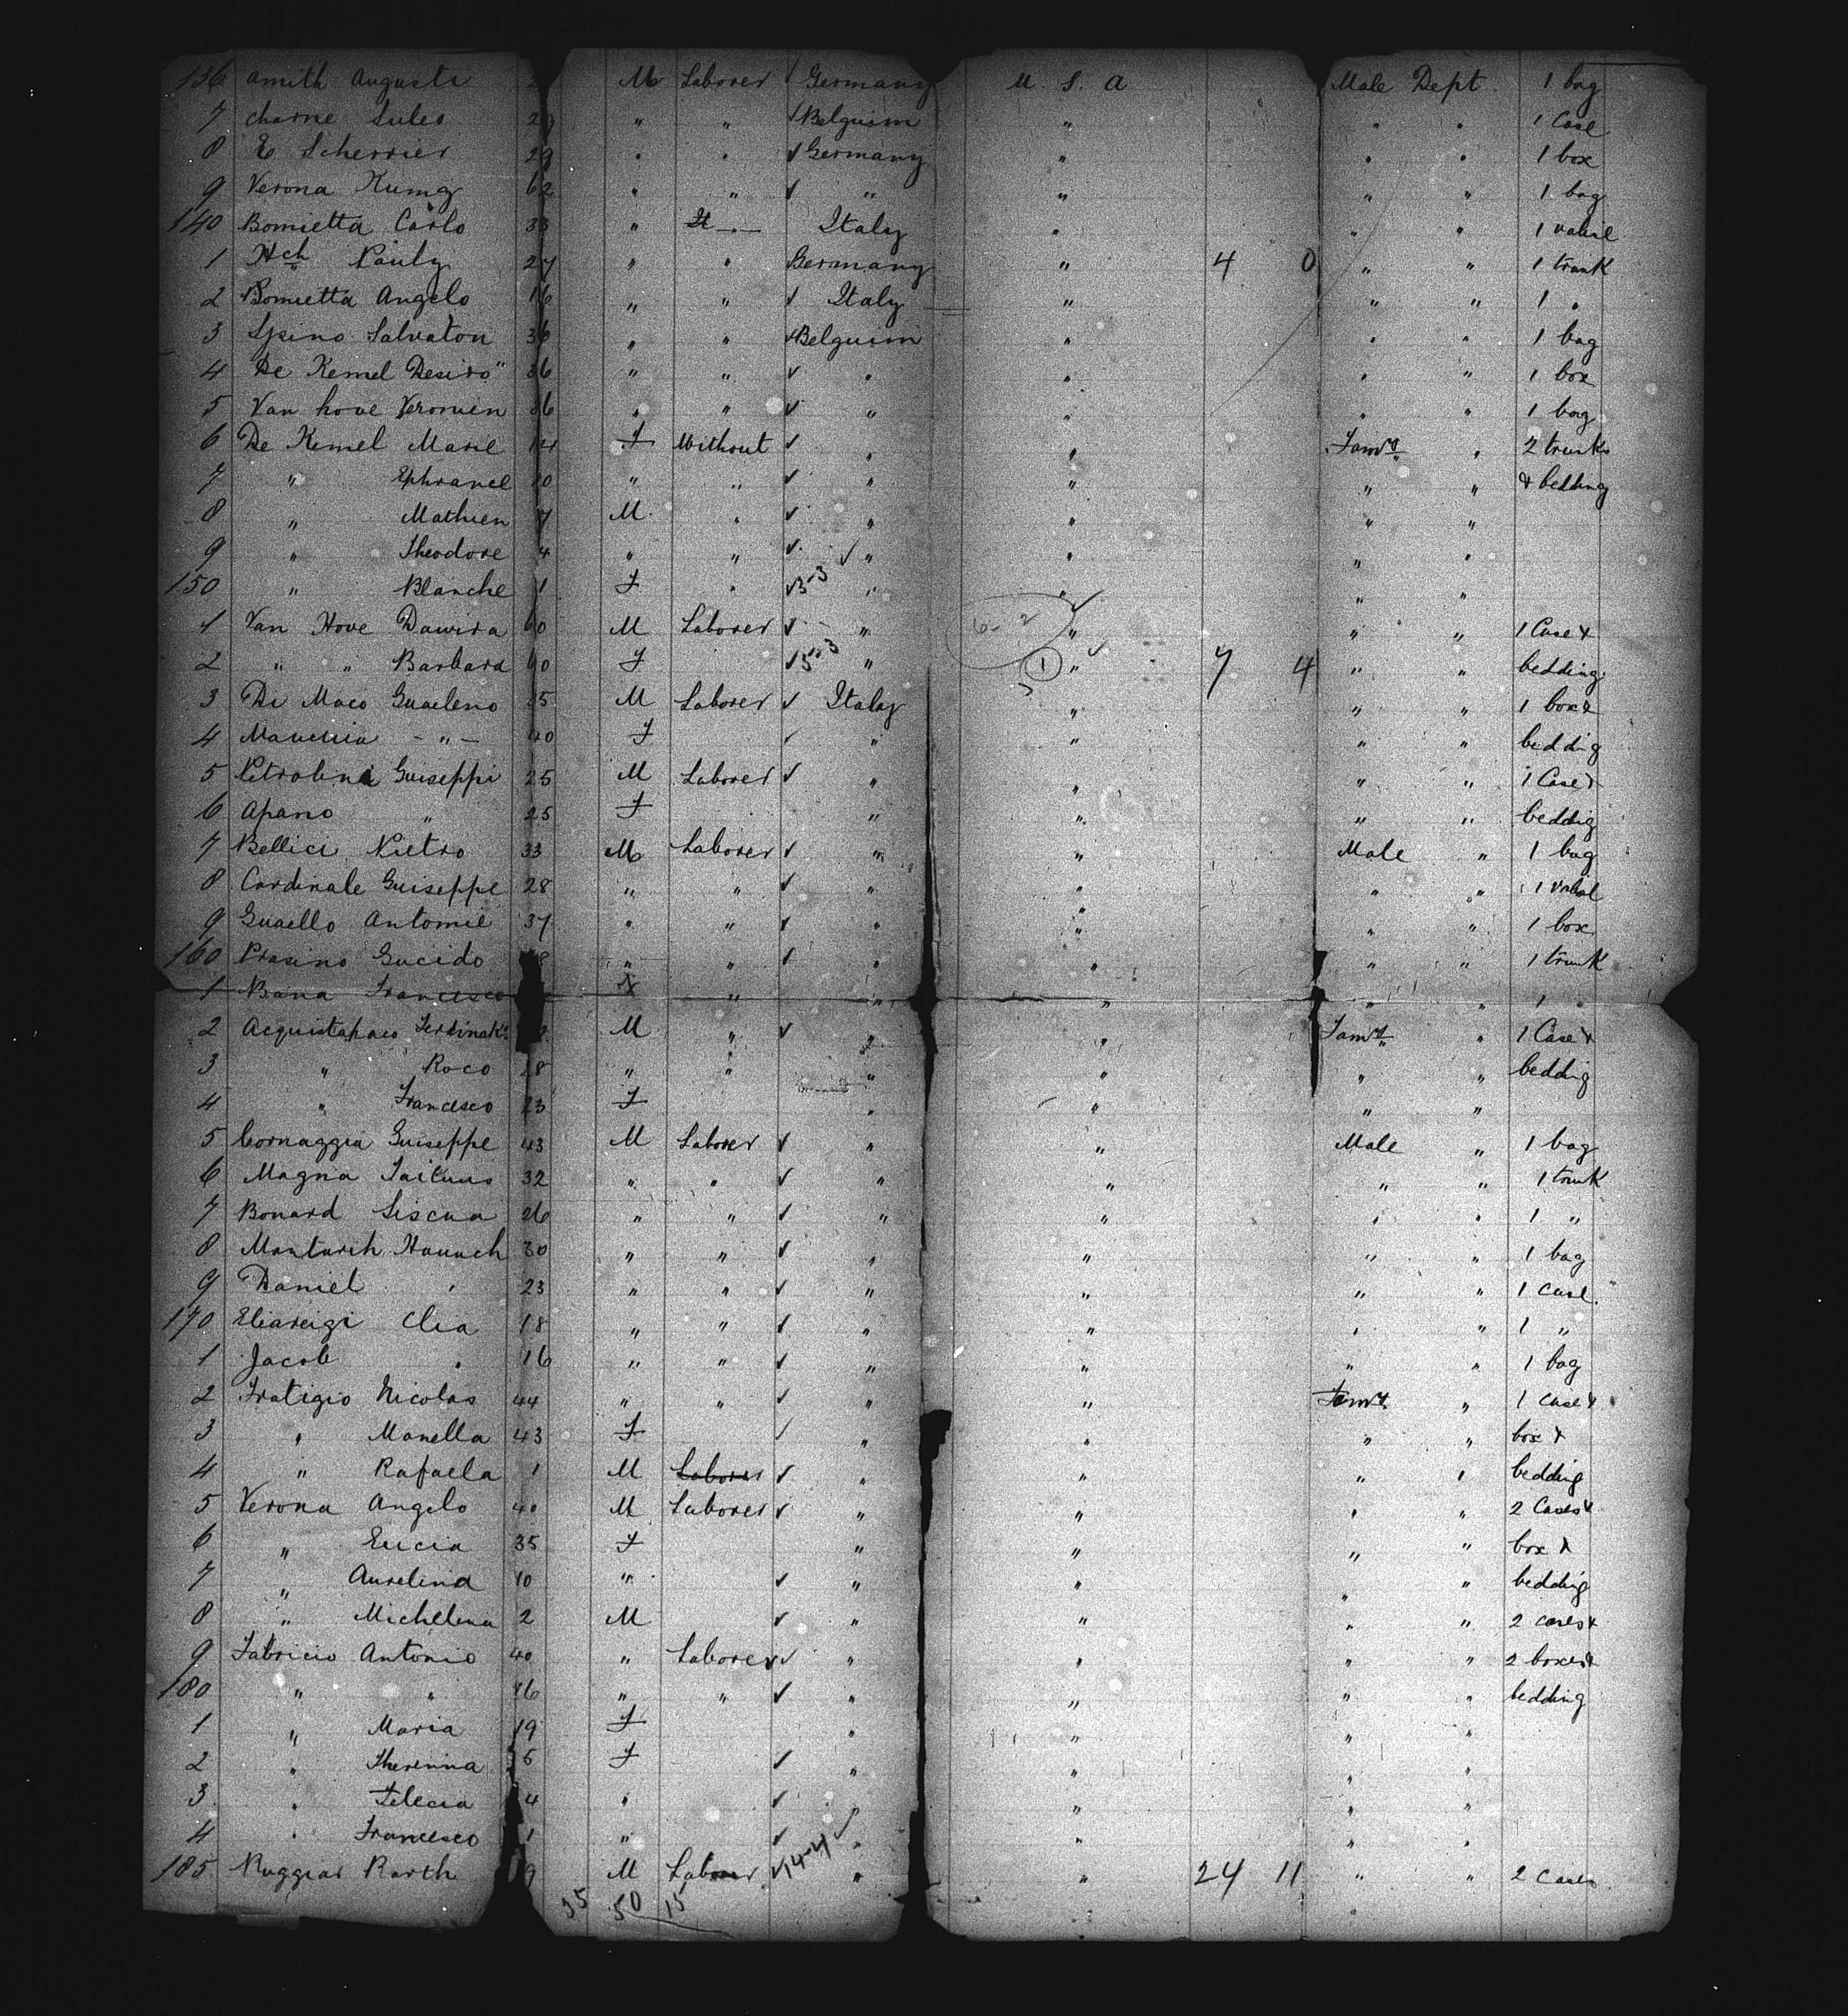 136 Amith Auguste 2 M Laborer Germany U. S. A Male Dept. 1 bag
7 Charne Jules 29 " " Belguim " " " 1 Case
8 E Scherrier 29 " " Germany " " " 1 box
9 Verona Kumg 62 " " " " " " 1 bag
140 Bomietta Carlo 33 " It Italy " " " 1 valise
1 Hch Pauly 27 " " Germany " 4 0 " " 1 trunk
2 Bomietta Angelo 16 " " Italy " " " 1 "
3 Spino Salvaton 36 " " Belguim " " " 1 bag
4 De Kemel Desiro" 36 " " " " " " 1 box
5 Van hove 36 " " " " " " 1 bag
6 De Kemel Marie 14 F Without " " Famy " 2 trunks
7 " Ephrance 10 " " " " " " & bedding
8 " Mathien 7 M " " " " "
9 " Theodore 4 " " " " " "
150 " Blanche 1 F " 3-3 " " " "
1 Van Hove 60 M Laborer " 6-2 " " " 1 Case &
2 " " Barbara 60 F 5-3 " 1 " 7 4 " " bedding
3 De Maco Guaeleno 35 M Laborer Italy " " " 1 box &
4 - " - 40 F " " " " beddig
5 Petrolina Guiseppi 25 M Laborer " " " " 1 Case &
6 Apano " 25 F " " " " beddig
7 Bellici Pietro 33 M Laborer " " Male " 1 bag
8 Cardinale Guiseppe 28 " " " " " " 1 valise
9 Guaello Antomie 37 " " " " " " 1 box
160 Prasino Gucido 8 " " " " " " 1 trunk
1 Bana Francesco " " " " " 1 "
2 Acquistapaco M " " " Famy " 1 Case &
3 " Roco 28 " " " " " " beddig
4 " Francesco 23 F " " " "
5 Cornaggia Guiseppe 43 M Laborer " " Male " 1 bag
6 Magna 32 " " " " " " 1 trunk
7 Bonard Siscua 26 " " " " " " 1 "
8 Manturih Hauuch 30 " " " " " " 1 bag
9 Daniel " 23 " " " " " " 1 case
170 Eliareigi Elia 18 " " " " " " 1 "
1 Jacob " 16 " " " " " " 1 bag
2 Fratigio Nicolas 44 " " " " Famy " 1 case &
3 " Manella 43 F " " " " box &
4 " Rafaela 1 M Laborer " " " " bedding
5 Verona Angelo 40 M Laborer " " " " 2 Cases &
6 " Lucia 35 F " " " " box &
7 " Aurelina 10 " " " " " bedding
8 " Michelina 2 M " " " " 2 cases &
9 Fabricio Antonio 40 " Laborer " " " " 2 boxes &
180 " " 16 " " " " " " bedding
1 " Maria 19 F " " " "
2 " Theresina 5 F " " " "
3 " Felecia 4 " " " "
4 " Francesco 1 " " " " "
185 Ruggias Barth 9 M Laborer 14-4 " " 24 11 " " 2 cases
35 50 15 "